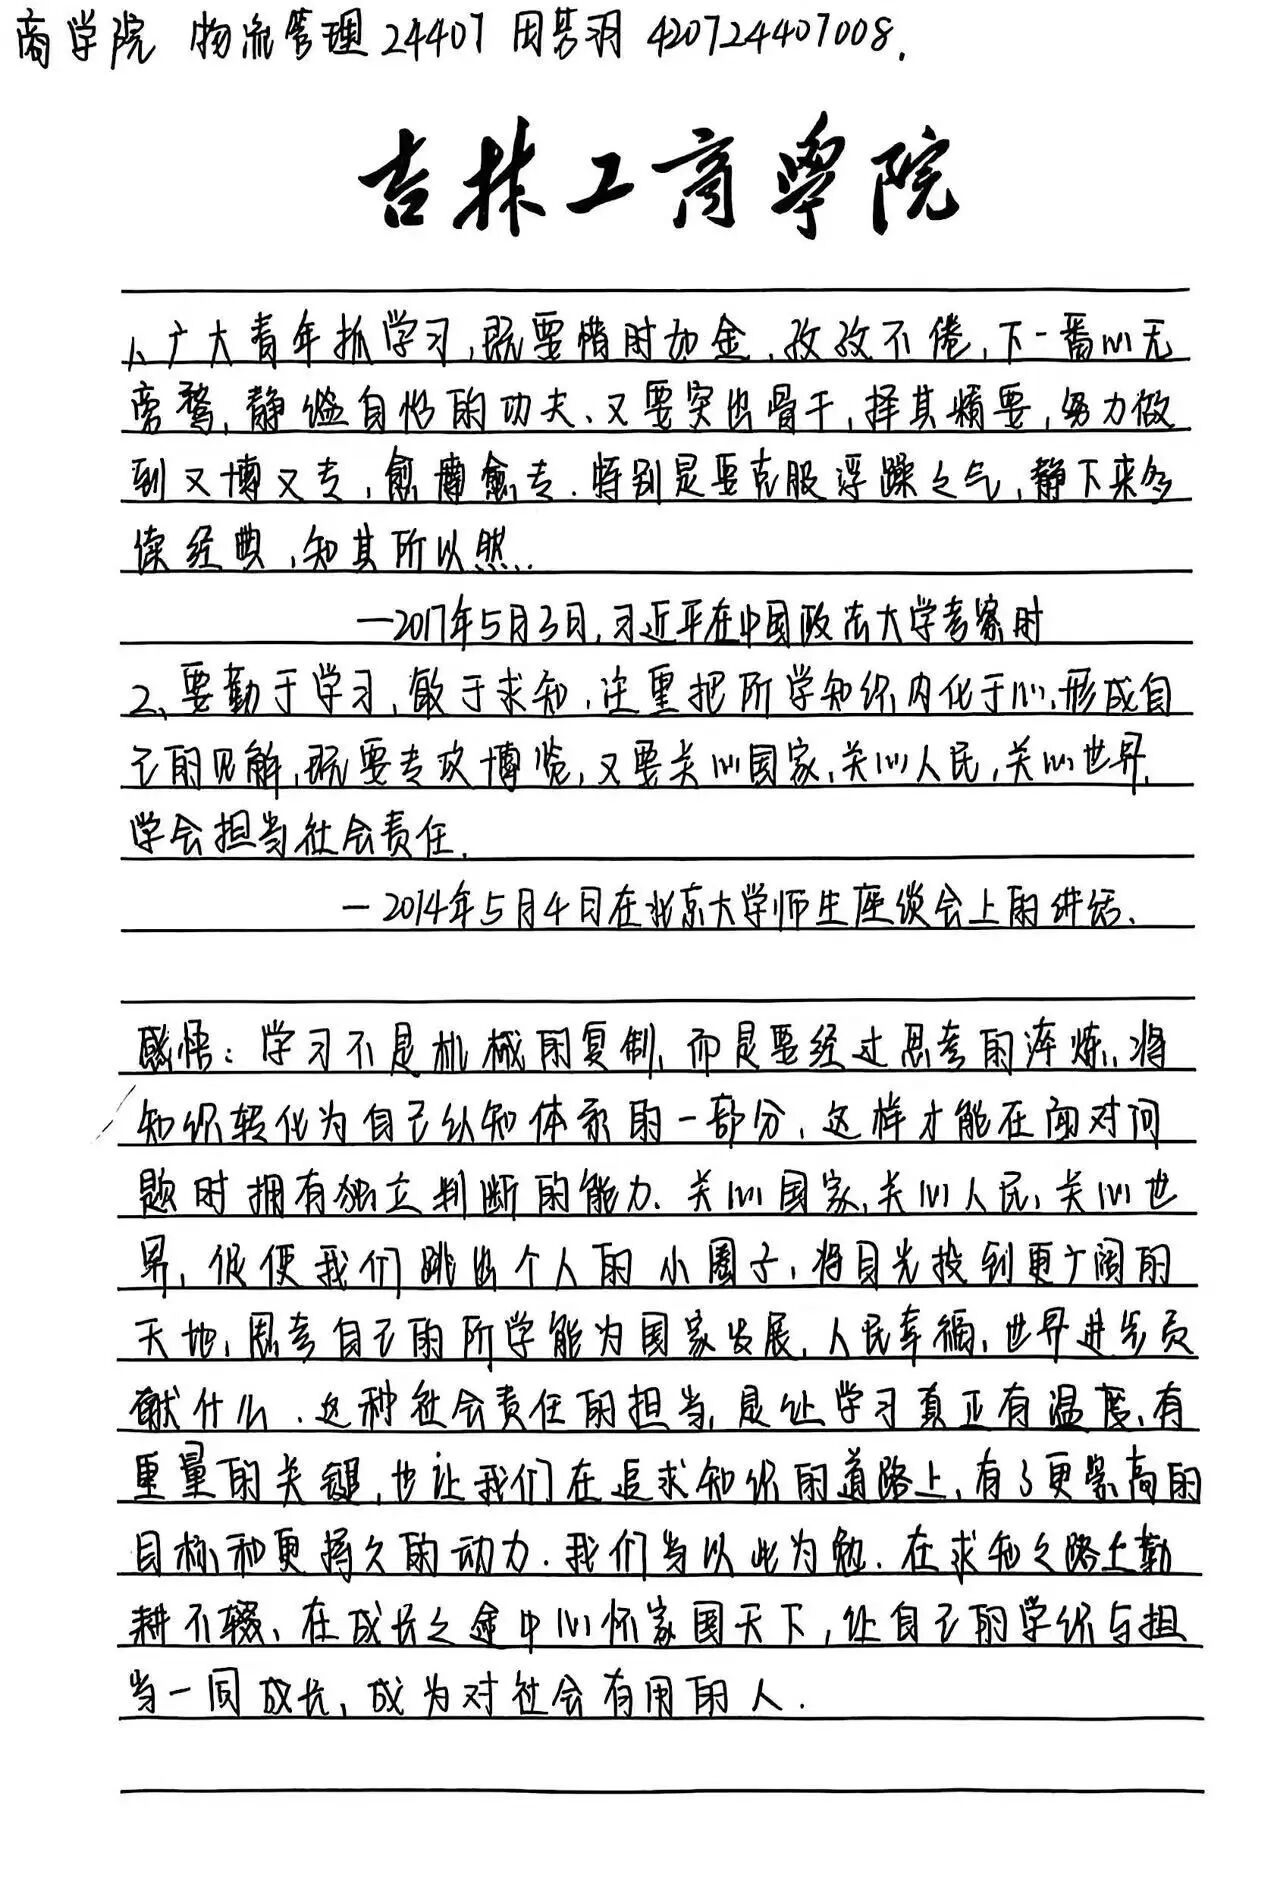 商学院 物流管理24407 田芳羽 420724407008.
吉林工商学院
1、广大青年抓学习,既要惜时如金、孜孜不倦,下一番心无
旁骛,静谧自怡的功夫、又要突出骨干,择其精要,努力做
到又博又专,愈博愈专.特别是要克服浮躁之气,静下来多
读经典,知其所以然.
—2017年5月3日,习近平在中国政法大学考察时
2、要勤于学习,敏于求知,注重把所学知识内化于心,形成自
己的见解,既要专攻博览,又要关心国家,关心人民,关心世界,
学会担当社会责任.
—2014年5月4日在北京大学师生座谈会上的讲话.
感悟:学习不是机械的复制,而是要经过思考的淬炼,将
知识转化为自己认知体系的一部分,这样才能在面对问
题时拥有独立判断的能力.关心国家,关心人民,关心世
界,促使我们跳出个人的小圈子,将目光投到更广阔的
天地,思考自己的所学能为国家发展,人民幸福,世界进步贡
献什么.这种社会责任的担当,是让学习真正有温度、有
重量的关键,也让我们在追求知识的道路上,有了更崇高的
目标和更持久的动力.我们当以此为勉.在求知之路上勤
耕不辍、在成长之途中心怀家国天下,让自己的学识与担
当一同成长,成为对社会有用的人.